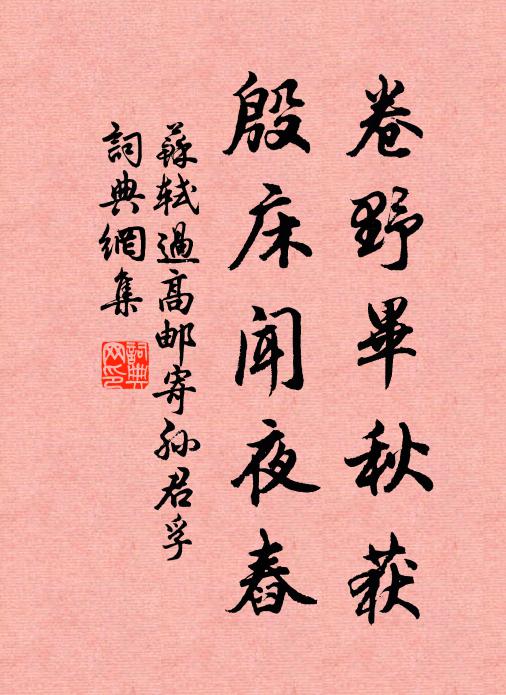 卷野畢秋荻
殷床聞夜舂
蘇軾過高邮寄孙君孚
詞典網集
詞典
网印